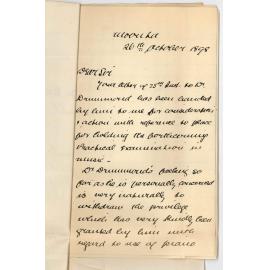 Moonta
26th October 1898
Dear Sir
Your letter of 25th Inst. to Dr
Drummond has been handed
by him to me for consideration
& action with reference to place
for holding the forthcoming
Practical Examination in
music -
Dr Drummond's feeling so
far as he is personally concerned
is very naturally to
withdraw the privilege
which has very kindly been
granted by him with
regard to use of piano